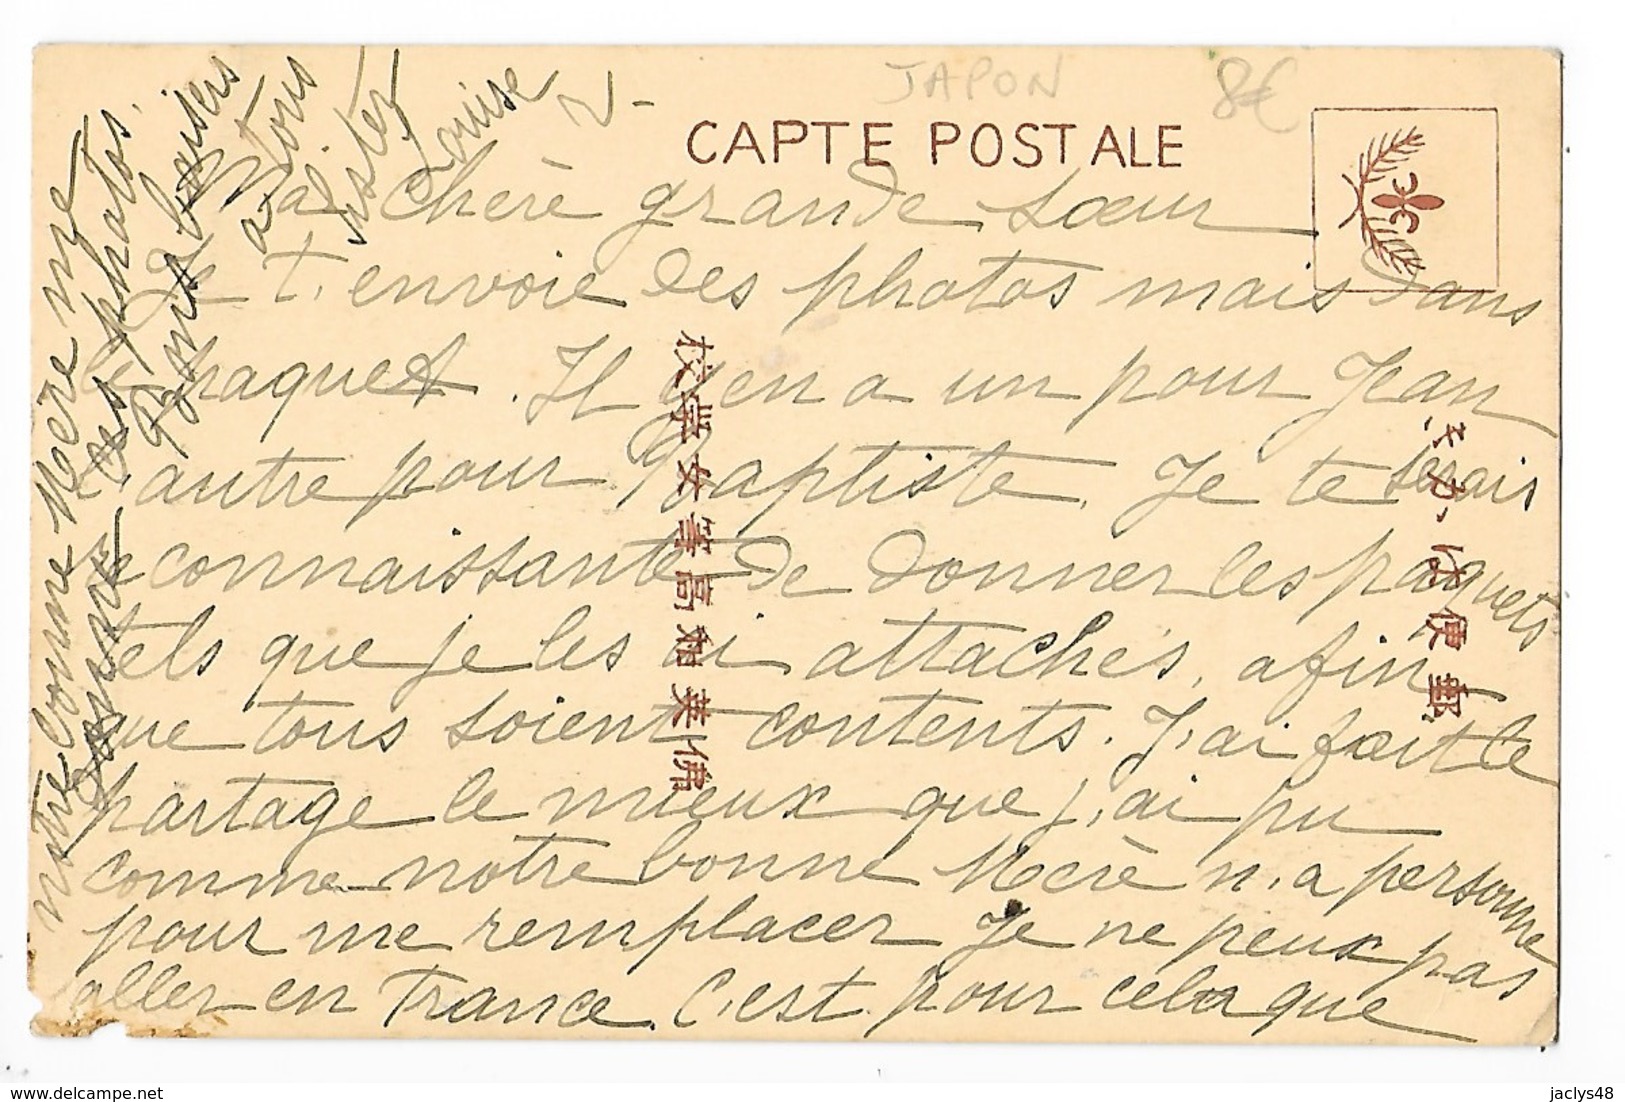 JAPON
8€
CAPTE POSTALE
Ma chère grande sœur
Je t'envoie des photos mais dans
le paquet. Il y en a un pour Jean
autre pour Baptiste. Je te serais
reconnaissante de donner les paquets
tels que je les ai attachés, afin
que tous soient contents. J'ai fait le
partage le mieux que j'ai pu
comme notre bonne Mère n'a personne
pour me remplacer Je ne peux pas
aller en France. C'est pour cela que
notre bonne Mère me
ces photos.
Bons baisers
à tous
Louise
佛英和高等女学校
郵便はかき
jaclys48